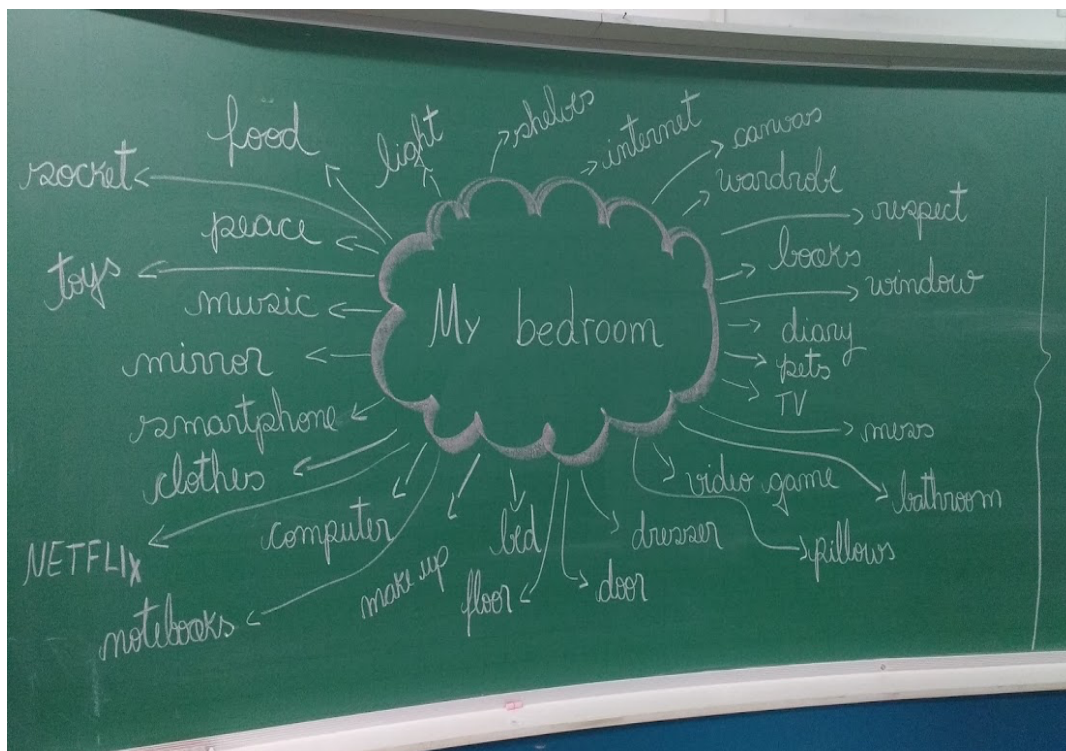 My bedroom
shelves
internet
canvas
wardrobe
respect
books
window
diary
pets
TV
mess
bathroom
video game
pillows
dresser
door
floor
bed
make up
computer
notebooks
NETFLIX
clothes
smartphone
mirror
music
toys
peace
socket
food
light